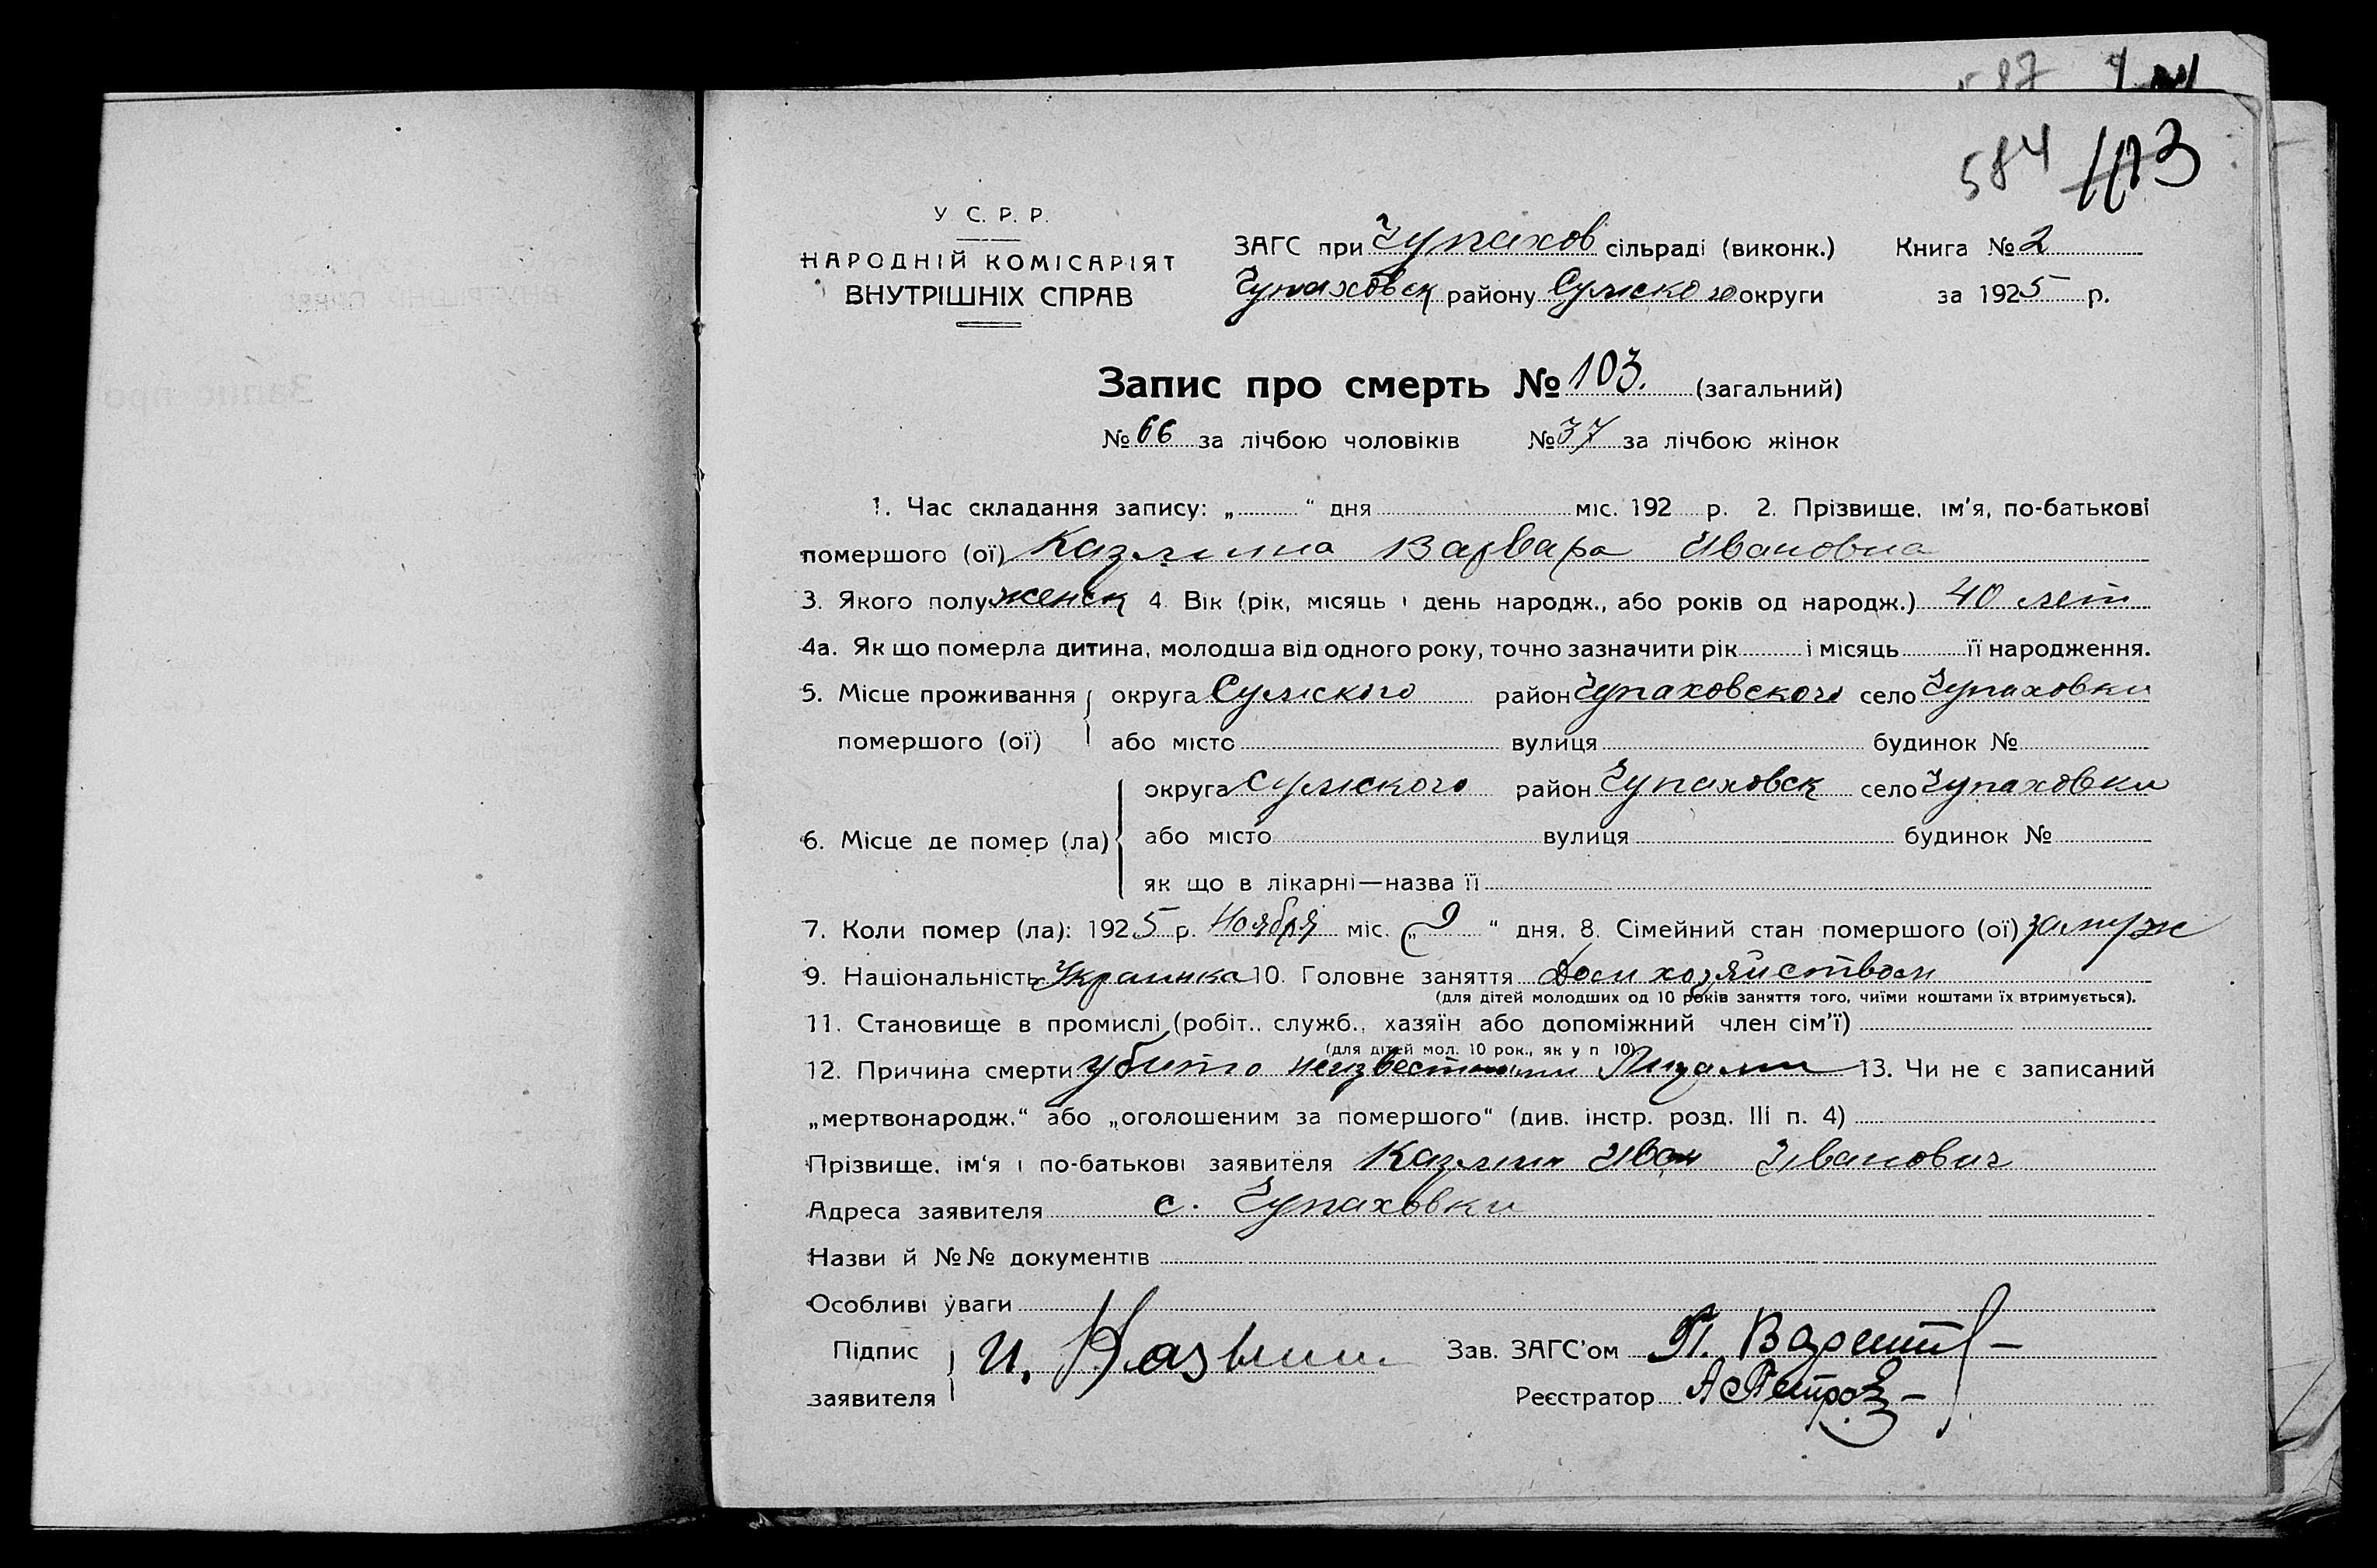 587
584 103
У С. Р. Р.
НАРОДНІЙ КОМІСАРІЯТ
ВНУТРІШНІХ СПРАВ
ЗАГС при Чупахов сільраді (виконк.) Книга № 2
Чупаховск району Сумского округи за 1925 р.
Запис про смерть № 103. (загальний)
№ 66 за лічбою чоловіків № 37 за лічбою жінок
1. Час складання запису: „ “ дня міс. 192 р. 2. Прізвище, ім’я, по-батькові
помершого (ої) Казмина Варвара Ивановна
3. Якого полу женск 4. Вік (рік, місяць і день народж., або років од народж.) 40 лет
4а. Як що померла дитина, молодша від одного року, точно зазначити рік і місяць її народження.
5. Місце проживання округа Сумского район Чупаховского село Чупаховки
помершого (ої) або місто вулиця будинок №
округа Сумского район Чупаховск село Чупаховки
6. Місце де помер (ла) або місто вулиця будинок №
як що в лікарні—назва її
7. Коли помер (ла): 1925 р. Ноября міс. „9“ дня. 8. Сімейний стан помершого (ої) замуж
9. Національність Украинка 10. Головне заняття Дом хозяйством
(для дітей молодших од 10 років заняття того, чиїми коштами їх втримується).
11. Становище в промислі (робіт., служб., хазяїн або допоміжний член сім’ї)
(для дітей мол. 10 рок., як у п 10)
12. Причина смерти убито неизвестными Лицами 13. Чи не є записаний
„мертвонародж.“ або „оголошеним за помершого“ (див. інстр. розд. III п. 4)
Прізвище, ім‘я і по-батькові заявителя Казмин Иван Иванович
Адреса заявителя с. Чупаховки
Назви й №№ документів
Особливі уваги
Підпис И. Казмин Зав. ЗАГС’ом П.
заявителя Реєстратор А Петров